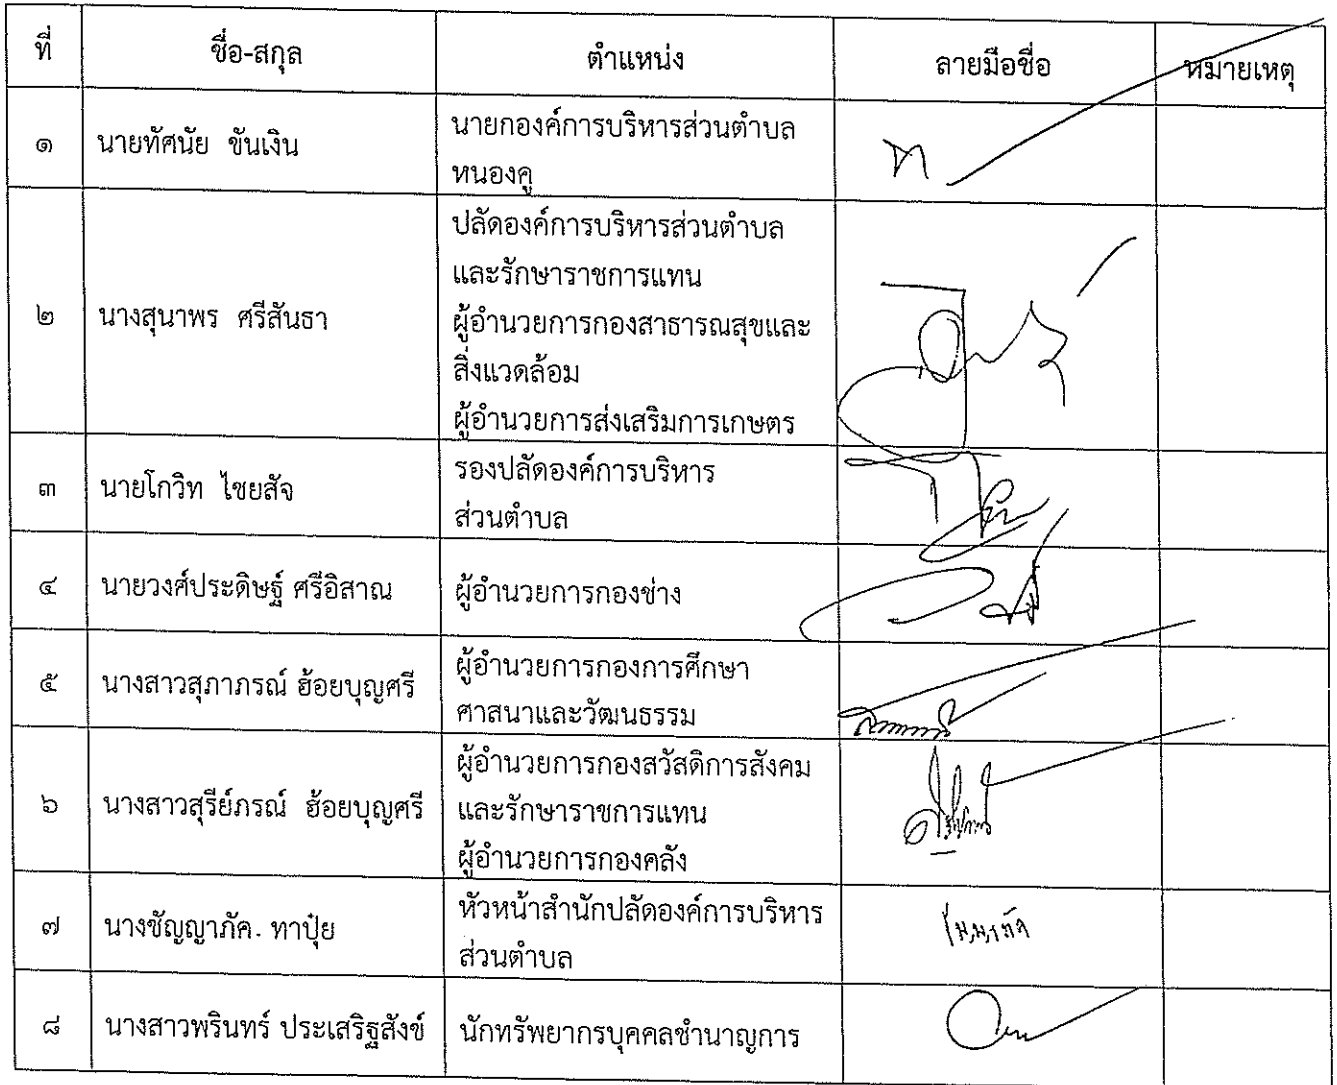 ที่ ชื่อ-สกุล ตำแหน่ง ลายมือชื่อ หมายเหตุ
๑ นายทัศนัย ขันเงิน นายกองค์การบริหารส่วนตำบล
หนองคู
๒ นางสุนาพร ศรีสันธา ปลัดองค์การบริหารส่วนตำบล
และรักษาราชการแทน
ผู้อำนวยการกองสาธารณสุขและ
สิ่งแวดล้อม
ผู้อำนวยการส่งเสริมการเกษตร
๓ นายโกวิท ไชยสัจ รองปลัดองค์การบริหาร
ส่วนตำบล
๔ นายวงศ์ประดิษฐ์ ศรีอิสาณ ผู้อำนวยการกองช่าง
๕ นางสาวสุภาภรณ์ ฮ้อยบุญศรี ผู้อำนวยการกองการศึกษา
ศาสนาและวัฒนธรรม
๖ นางสาวสุรีย์ภรณ์ ฮ้อยบุญศรี ผู้อำนวยการกองสวัสดิการสังคม
และรักษาราชการแทน
ผู้อำนวยการกองคลัง
๗ นางชัญญาภัค. ทาปุ๋ย หัวหน้าสำนักปลัดองค์การบริหาร
ส่วนตำบล
๘ นางสาวพรินทร์ ประเสริฐสังข์ นักทรัพยากรบุคคลชำนาญการ